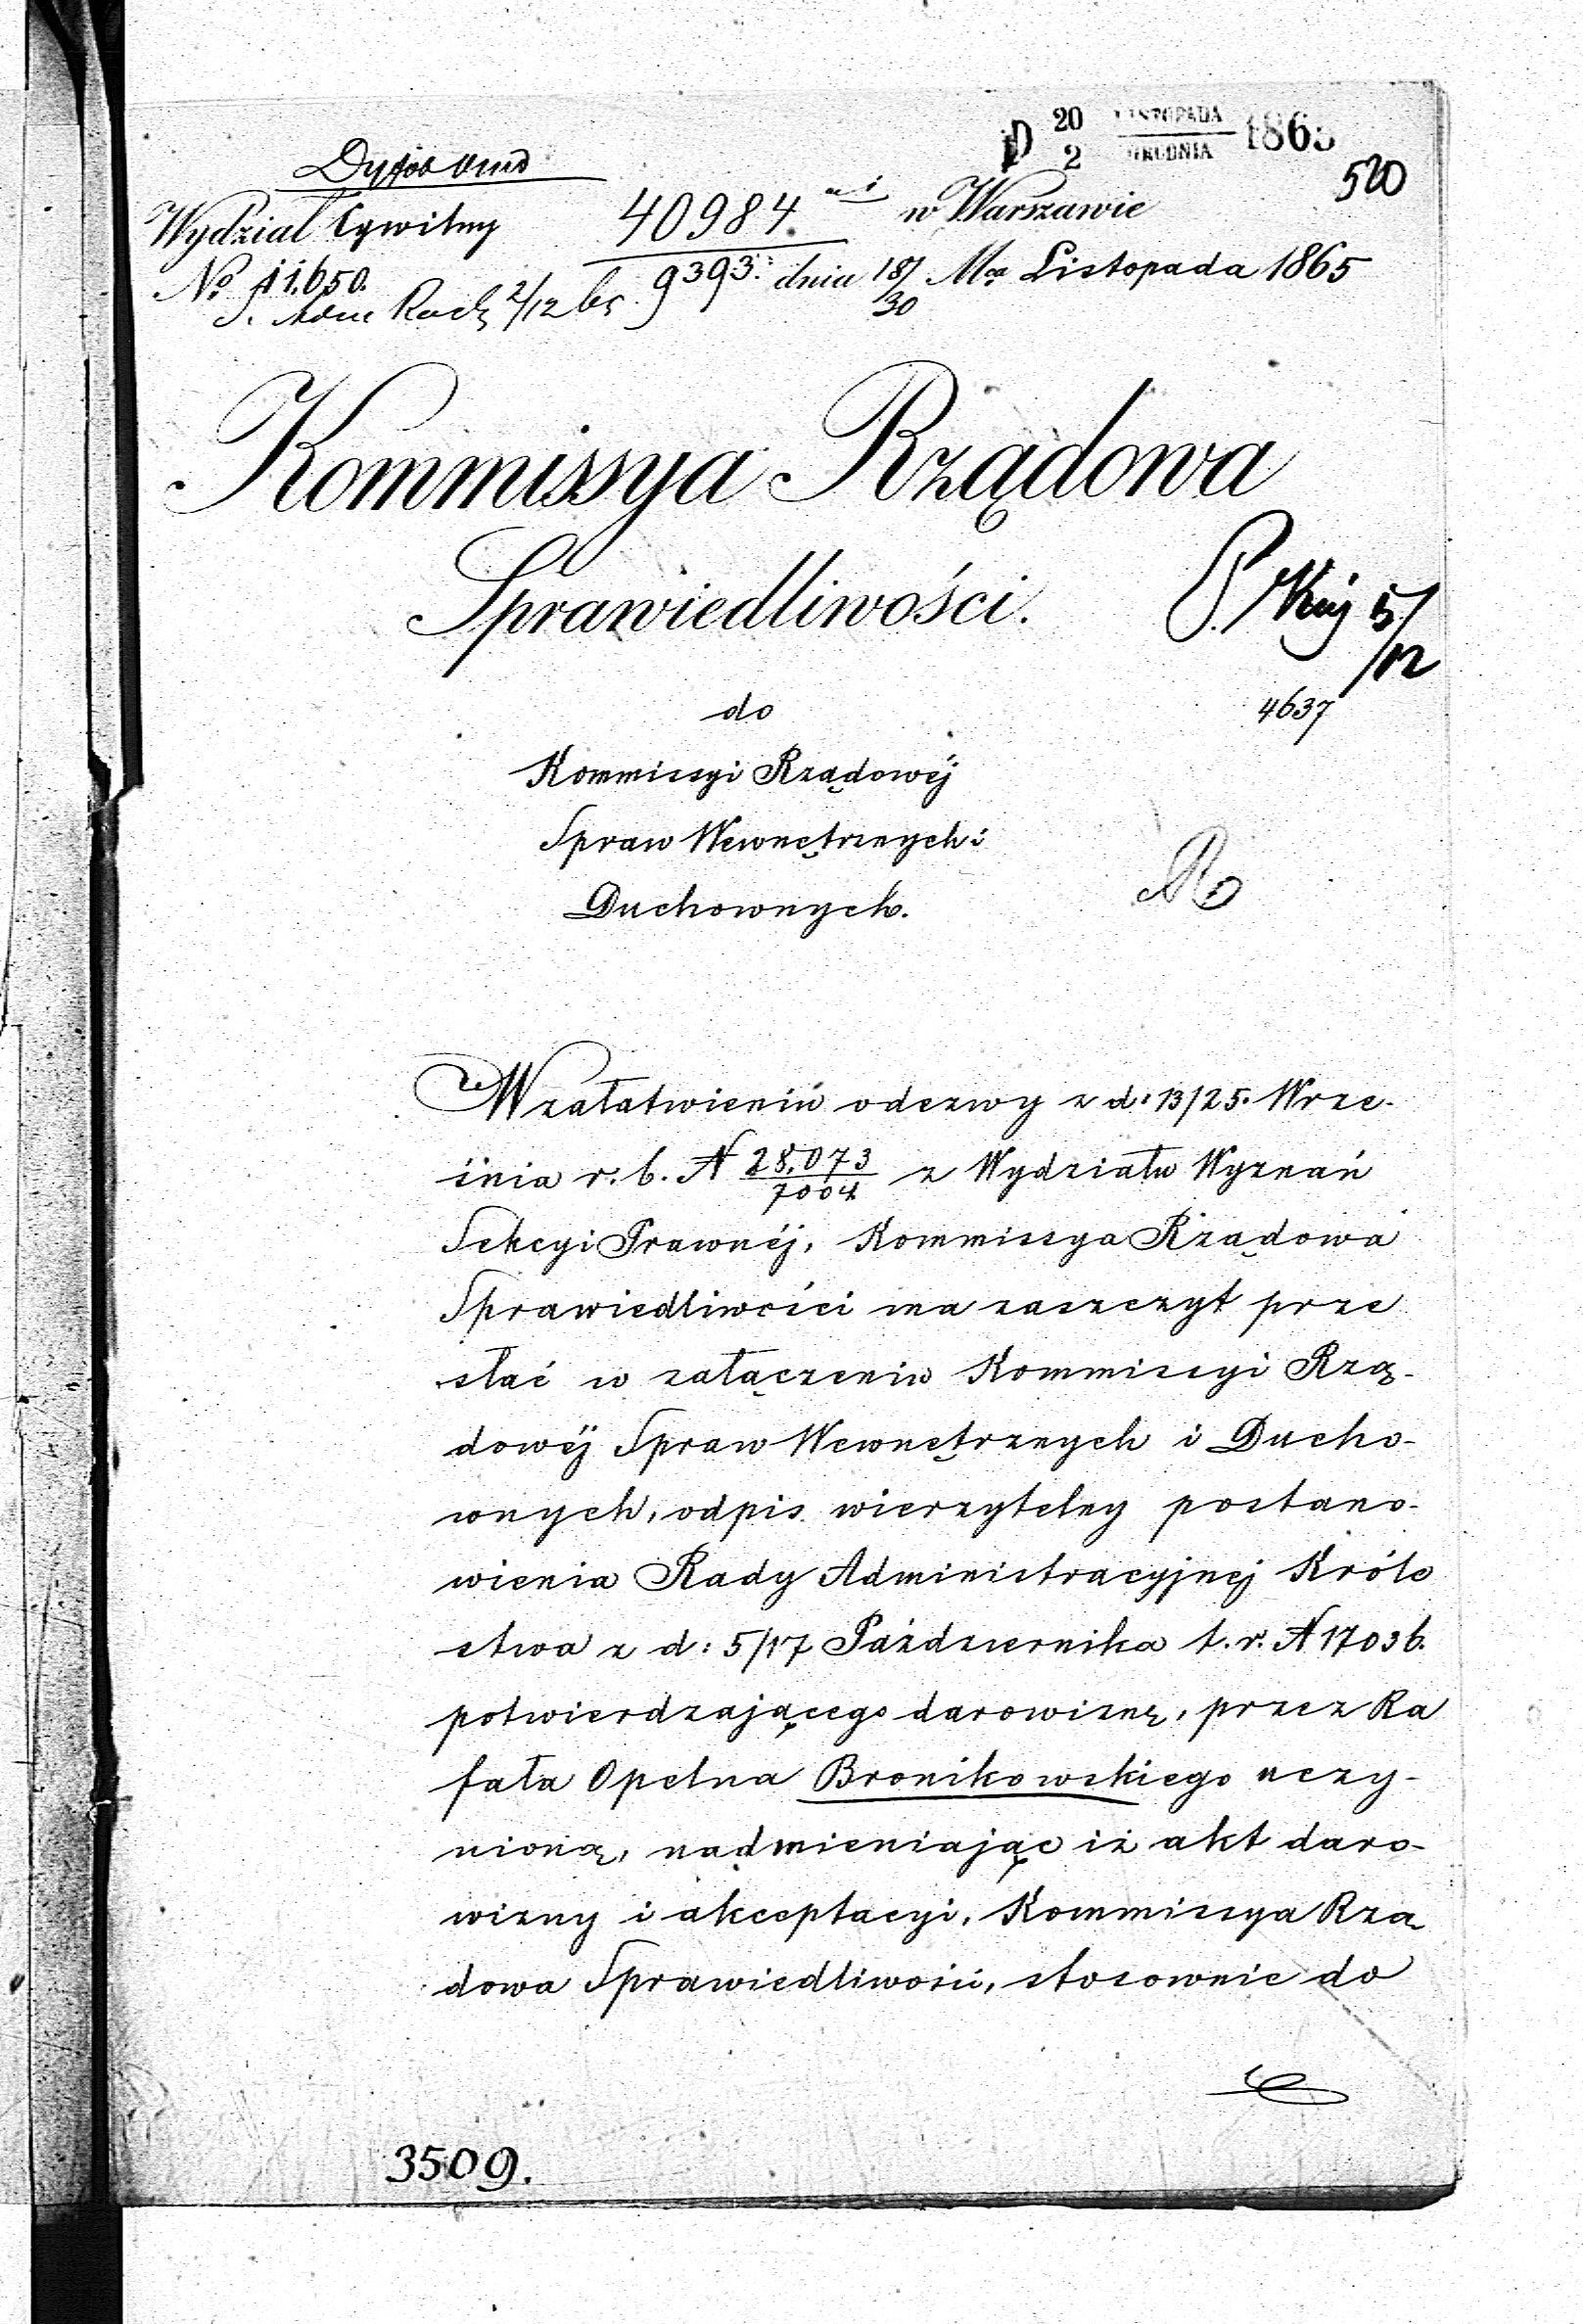 D 20/2 LISTOPADA/GRUDNIA 1865
520
Wydział Cywilny 40984 w Warszawie
No 11,650. 9393. dnia 18/30 Mca Listopada 1865
2/12
Kommissya Rządowa
Sprawiedliwości.
5/12
do
4637
Kommissyi Rządowéj
Spraw Wewnętrznych i
Duchownych.
W załatwieniu odezwy z d: 13/25. Wrze-
śnia r. b. N 28,073/7004 z Wydziału Wyznań
Sekcyi Prawnéj, Kommissya Rządowa
Sprawiedliwości ma zaszczyt prze
słać w załączeniu Kommissyi Rzą-
dowéj Spraw Wewnętrznych i Ducho-
wnych, odpis wierzytelny postano-
wienia Rady Administracyjnej Króle
stwa z d: 5/17 Października t. r. N 17036.
potwierdzającego darowiznę, przez Ra
fała Opelna Bronikowskiego uczy-
nioną, nadmieniając iż akt daro-
wizny i akceptacyi, Kommissya Rzą
dowa Sprawiedliwości, stosownie do
3509.